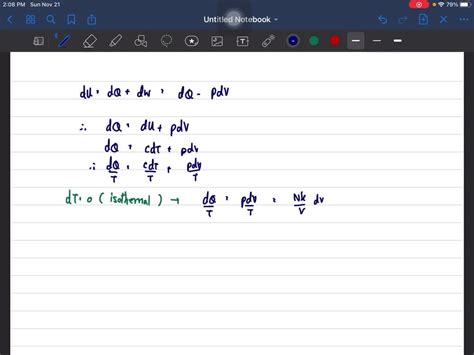 2:08 PM Sun Nov 21
79%
Untitled Notebook
dU = dQ + dW = dQ - pdV
∴ dQ = dU + pdV
dQ = CdT + pdV
∴ dQ/T = CdT/T + pdV/T
dT = 0 (isothermal) → dQ/T = pdV/T = Nk/V dV